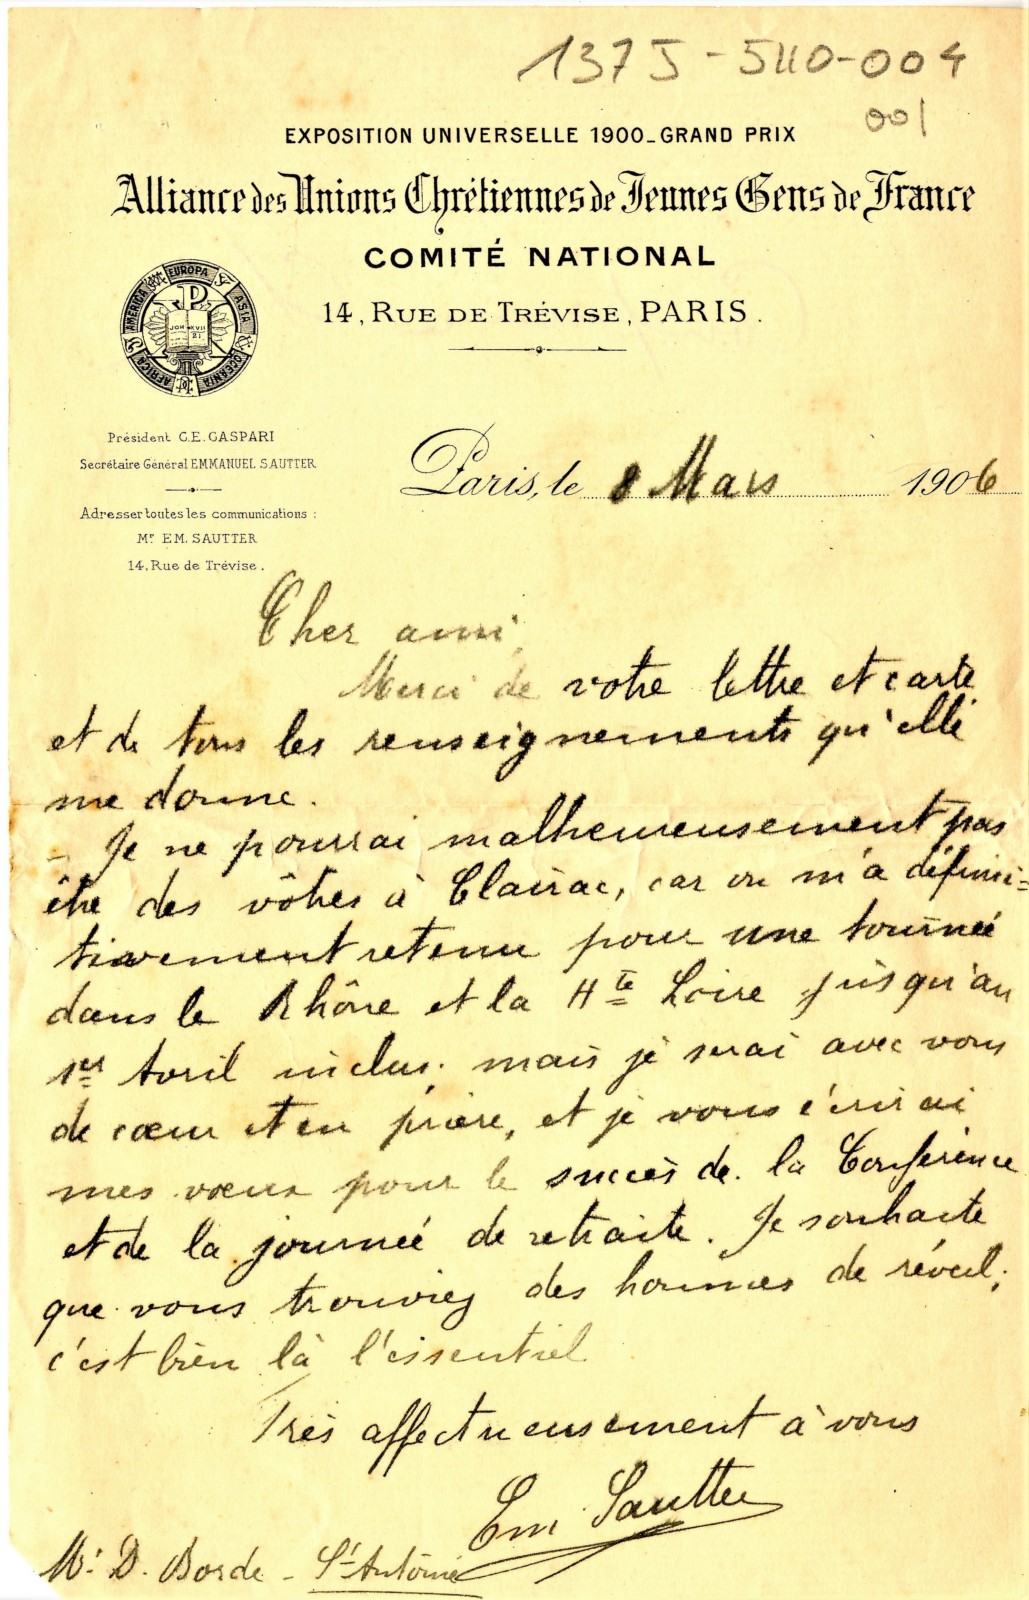 137 J - 5110-004
001
EXPOSITION UNIVERSELLE 1900_GRAND PRIX
Alliance des Unions Chrétiennes de Jeunes Gens de France
COMITÉ NATIONAL
14, RUE DE TRÉVISE, PARIS.
EUROPA
ASIA
OCEANIA
AFRICA
AMERICA
P
JOH XVII 21
Président C.E. GASPARI
Secrétaire Général EMMANUEL SAUTTER
Adresser toutes les communications :
Mr EM. SAUTTER
14, Rue de Trévise.
Paris, le 8 Mars 1906
Cher ami,
Merci de votre lettre et carte
et de tous les renseignements qu'elle
me donne.
Je ne pourrai malheureusement pas
être des vôtres à Clairac, car on m'a défini=
tivement retenu pour une tournée
dans le Rhône et la Hte Loire jusqu'au
1er Avril inclus. mais je serai avec vous
de cœur et en prière, et je vous écrirai
mes vœux pour le succès de la Conférence
et de la journée de retraite. Je souhaite
que vous trouviez des hommes de réveil;
c'est bien là l'essentiel
Très affectueusement à vous
Em Sautter
Mr D. Borde - St Antoine